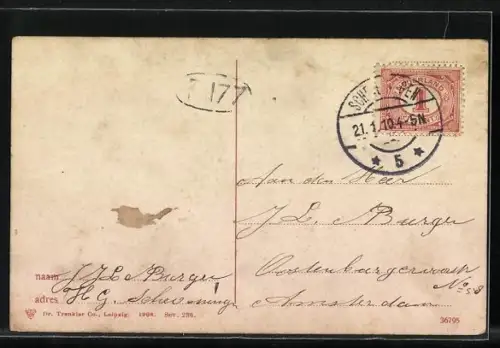 177
NEDERLAND
1
SCHEVENINGEN
21.1.10.4-5N
5
Aan den Heer
J L. Burger
Oostenburgergracht
No 58
Amsterdam
naam J L Burger
adres H G Scheveningen
Dr. Trenkler Co., Leipzig. 1908. Ser. 238.
36795